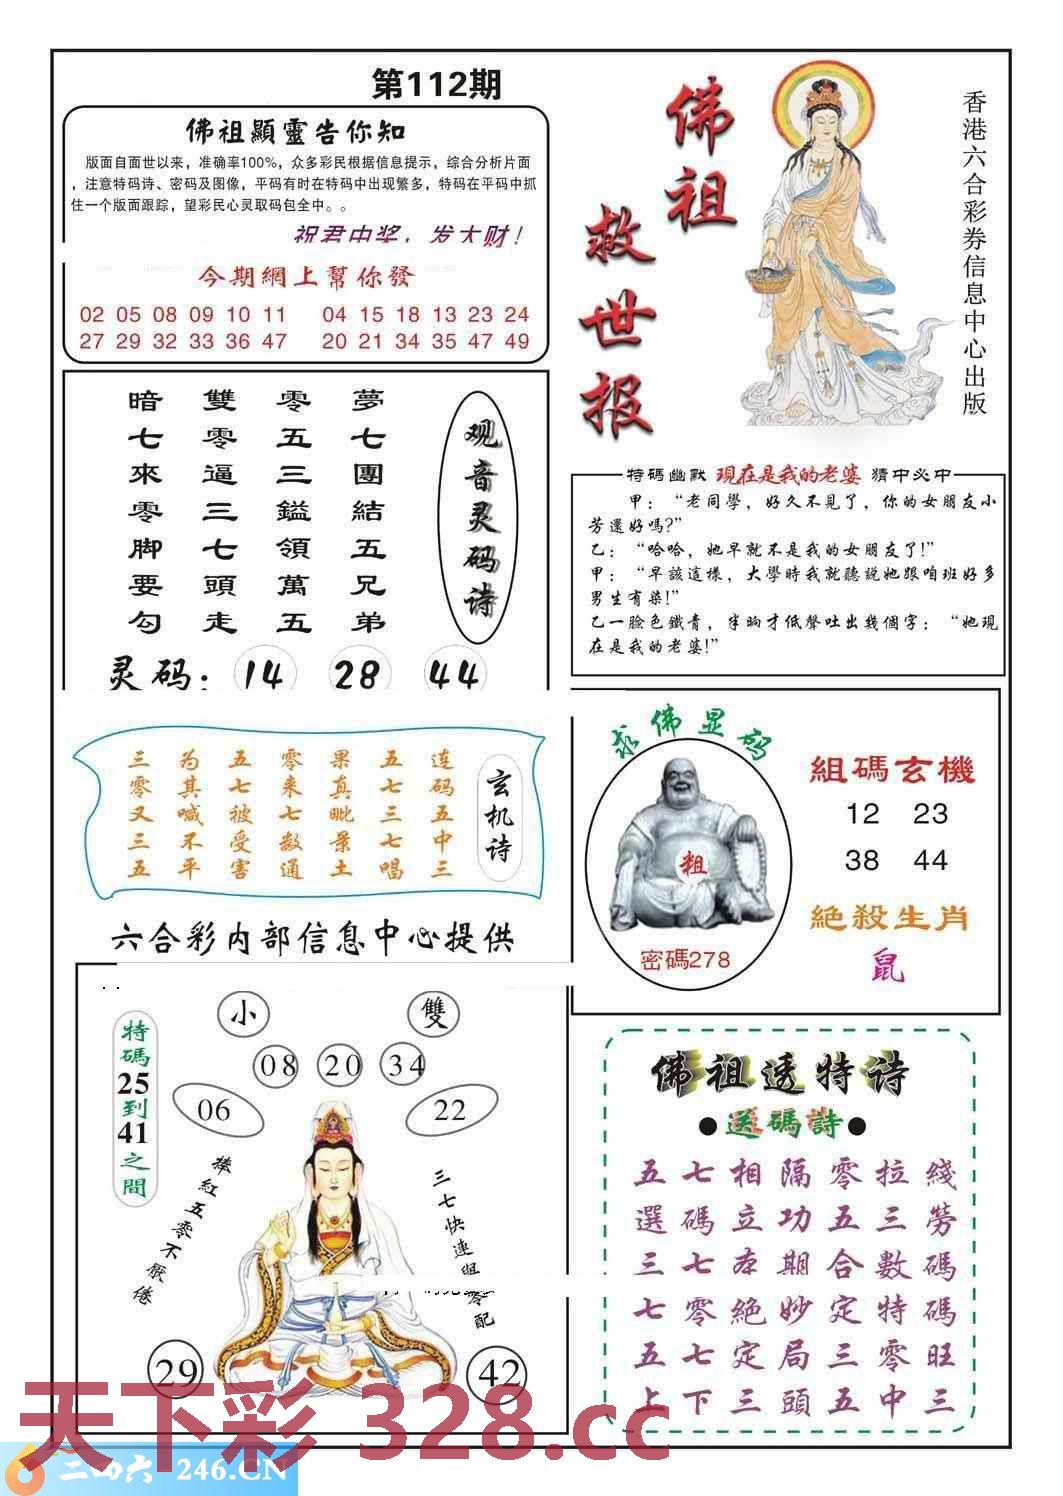 第112期
佛祖顯靈告你知
版面自面世以来，准确率100%，众多彩民根据信息提示，综合分析片面
，注意特码诗、密码及图像，平码有时在特码中出现繁多，特码在平码中抓
住一个版面跟踪，望彩民心灵取码包全中。。
祝君中奖，发大财！
今期網上幫你發
02 05 08 09 10 11 04 15 18 13 23 24
27 29 32 33 36 47 20 21 34 35 47 49
佛祖
救世报
香港六合彩券信息中心出版
观音灵码诗
夢七團結五兄弟
零五三鎰領萬五
雙零逼三七頭走
暗七來零脚要勾
灵码：14 28 44
特碼幽默 現在是我的老婆 猜中必中
甲：“老同學，好久不見了，你的女朋友小
芳還好嗎?”
乙：“哈哈，她早就不是我的女朋友了!”
甲：“早該這樣，大學時我就聽説她跟咱班好多
男生有染!”
乙一臉色鐵青，半晌才低聲吐出幾個字：“她現
在是我的老婆!”
玄机诗
连码五中三
五七三七唱
果真毗景土
零来七数通
五七被受害
为其喊不平
三零又三五
求佛显码
粗
密碼278
組碼玄機
12 23
38 44
絶殺生肖
鼠
六合彩内部信息中心提供
特碼25到41之間
小 雙
08 20 34
06 22
捧紅五零不厭倦
三七快連與零配
29 42
佛祖透特诗
●送碼詩●
五七相隔零拉綫
選碼立功五三勞
三七本期合數碼
七零絶妙定特碼
五七定局三零旺
上下三頭五中三
天下彩 328.cc
二四六 246.CN